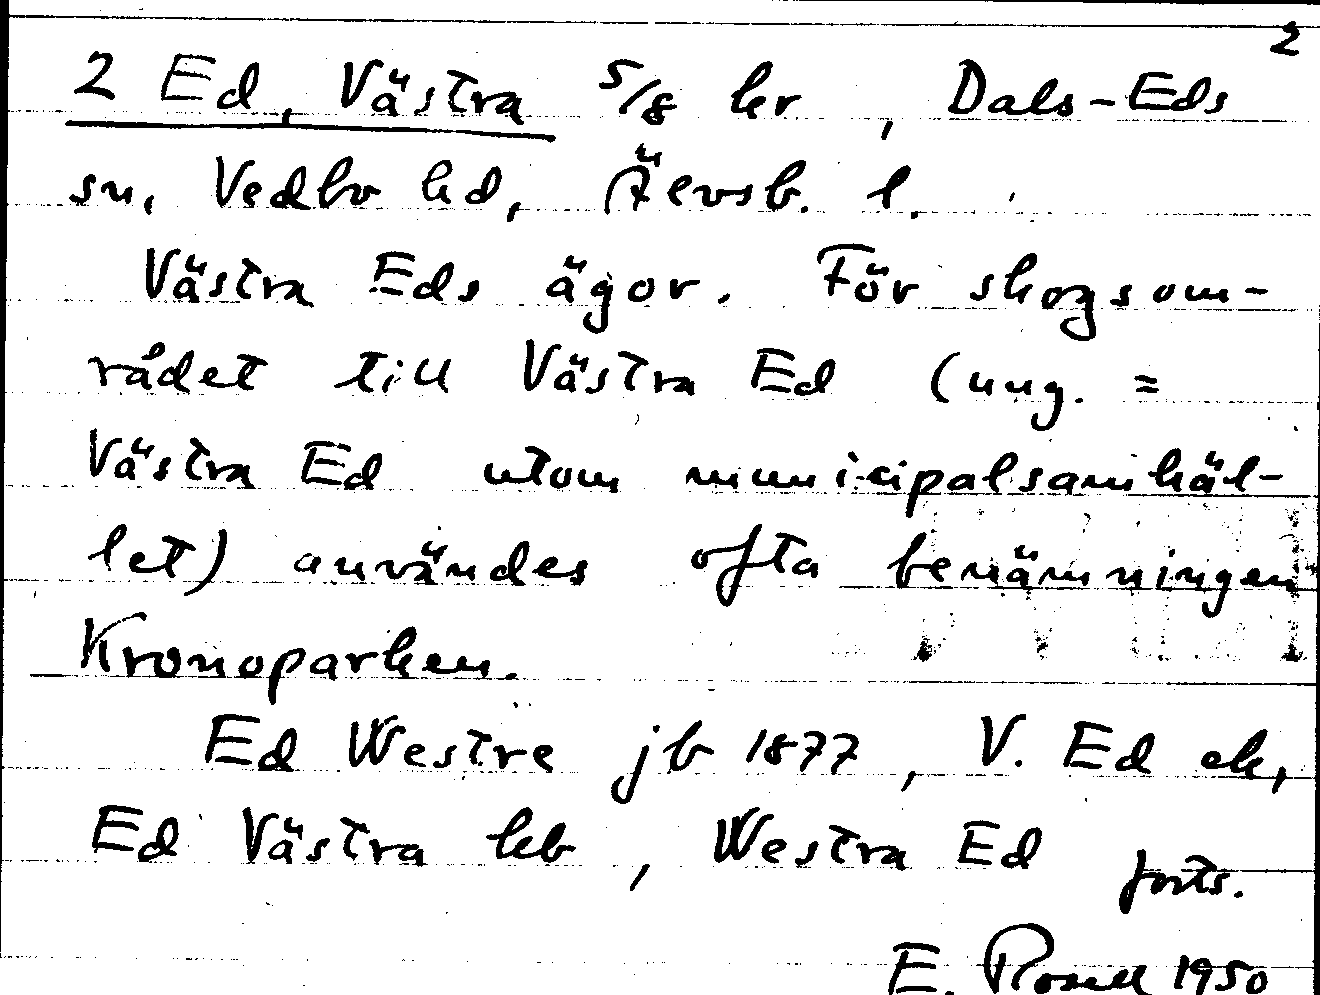 2
2 Ed, Västra 5/8 kr, Dals-Eds
sn, Vedbo hd, Älvsb. l.
Västra Eds ägor. För skogsom-
rådet till Västra Ed (ung. =
Västra Ed utom municipalsamhäl-
let) användes ofta benämningen
Kronoparken.
Ed Westre jb 1877, V. Ed ek,
Ed Västra kb, Westra Ed
forts.
E. Rosell 1950